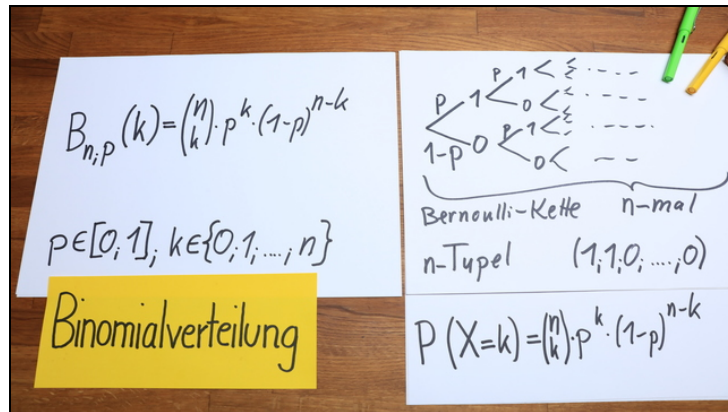 B_{n;p}(k)=(n k)·p^k·(1-p)^{n-k}
p∈[0;1]; k∈{0;1;....;n}
Binomialverteilung
p 1 < ----
p 1 0 < ----
1-p 0 p 1 < ----
0 < --
Bernoulli-Kette n-mal
n-Tupel (1;1;0;....;0)
P(X=k)=(n k)·p^k·(1-p)^{n-k}